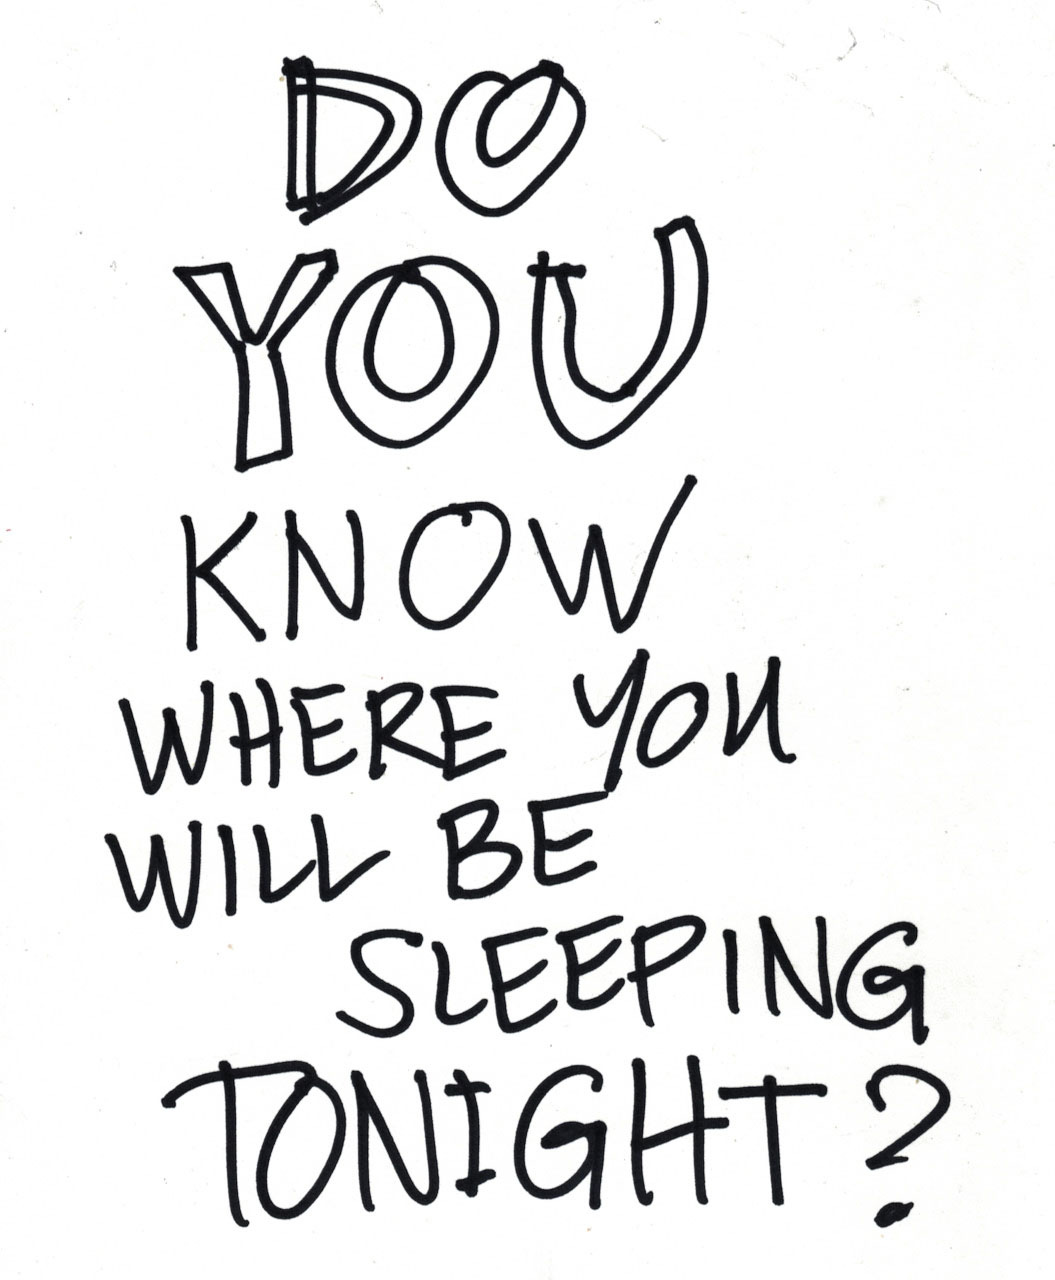 DO
YOU
KNOW
WHERE YOU
WILL BE
SLEEPING
TONIGHT?